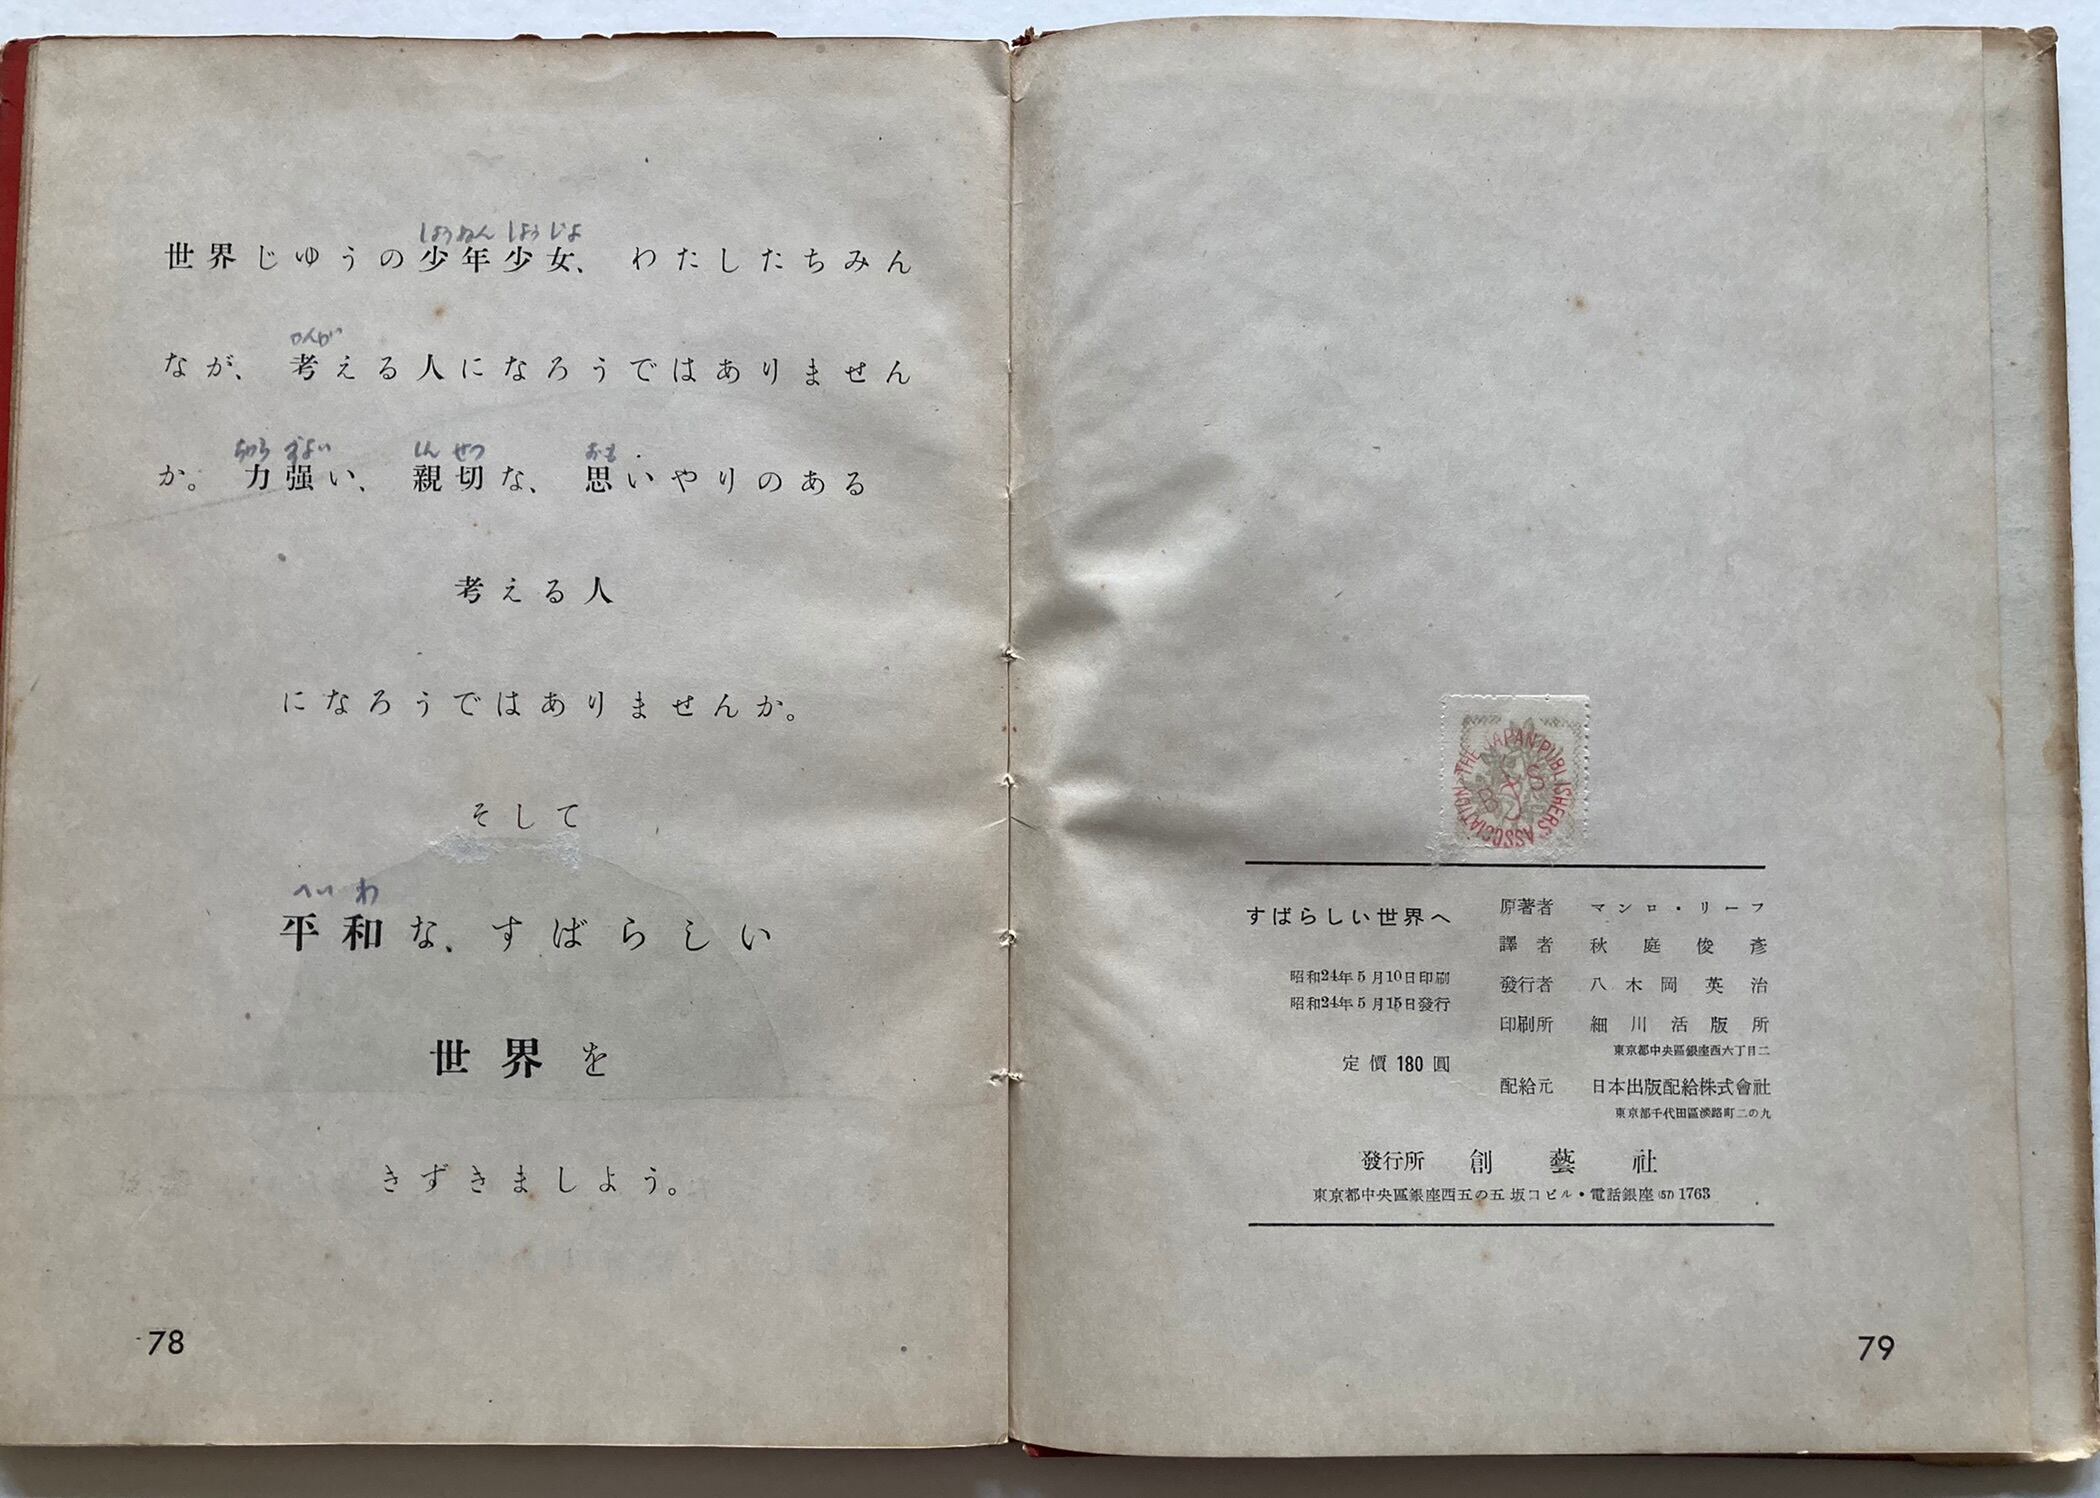 しょうねん しょうじょ
世界じゆうの少年少女、わたしたちみん
かんが
なが、考える人になろうではありません
ちから づよい しん せつ おも
か。力強い、親切な、思いやりのある
考える人
になろうではありませんか。
そして
へい わ
平和な、すばらしい
世界を
きずきましよう。
78
THE JAPAN PUBLISHERS' ASSOCIATION
すばらしい世界へ
昭和24年5月10日印刷
昭和24年5月15日發行
定價180圓
原著者 マンロ・リーフ
譯者 秋庭俊彥
發行者 八木岡英治
印刷所 細川活版所
東京都中央區銀座西六丁目二
配給元 日本出版配給株式會社
東京都千代田區淡路町二の九
發行所 創藝社
東京都中央區銀座西五の五坂口ビル・電話銀座(57)1763
79